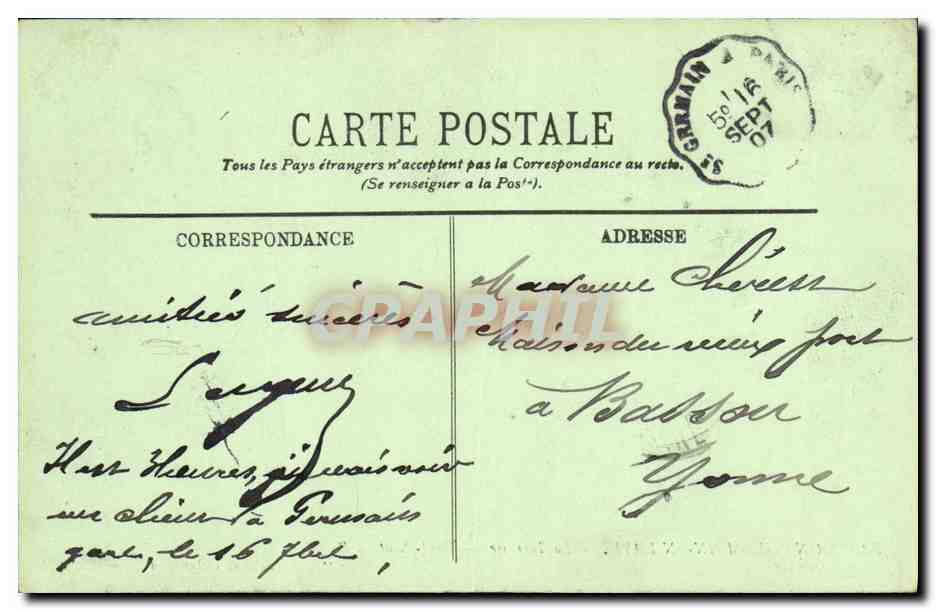 St GERMAIN A PARIS
16
SEPT
07
CARTE POSTALE
Tous les Pays étrangers n'acceptent pas la Correspondance au recto.
(Se renseigner a la Poste).
CORRESPONDANCE
ADRESSE
amitiés sincères
Madame
Maison du vieux port
à Bassou
Yonne
CPRAPHIL
7 heures, je vais voir
un client à Germain
gare, le 16 7bre